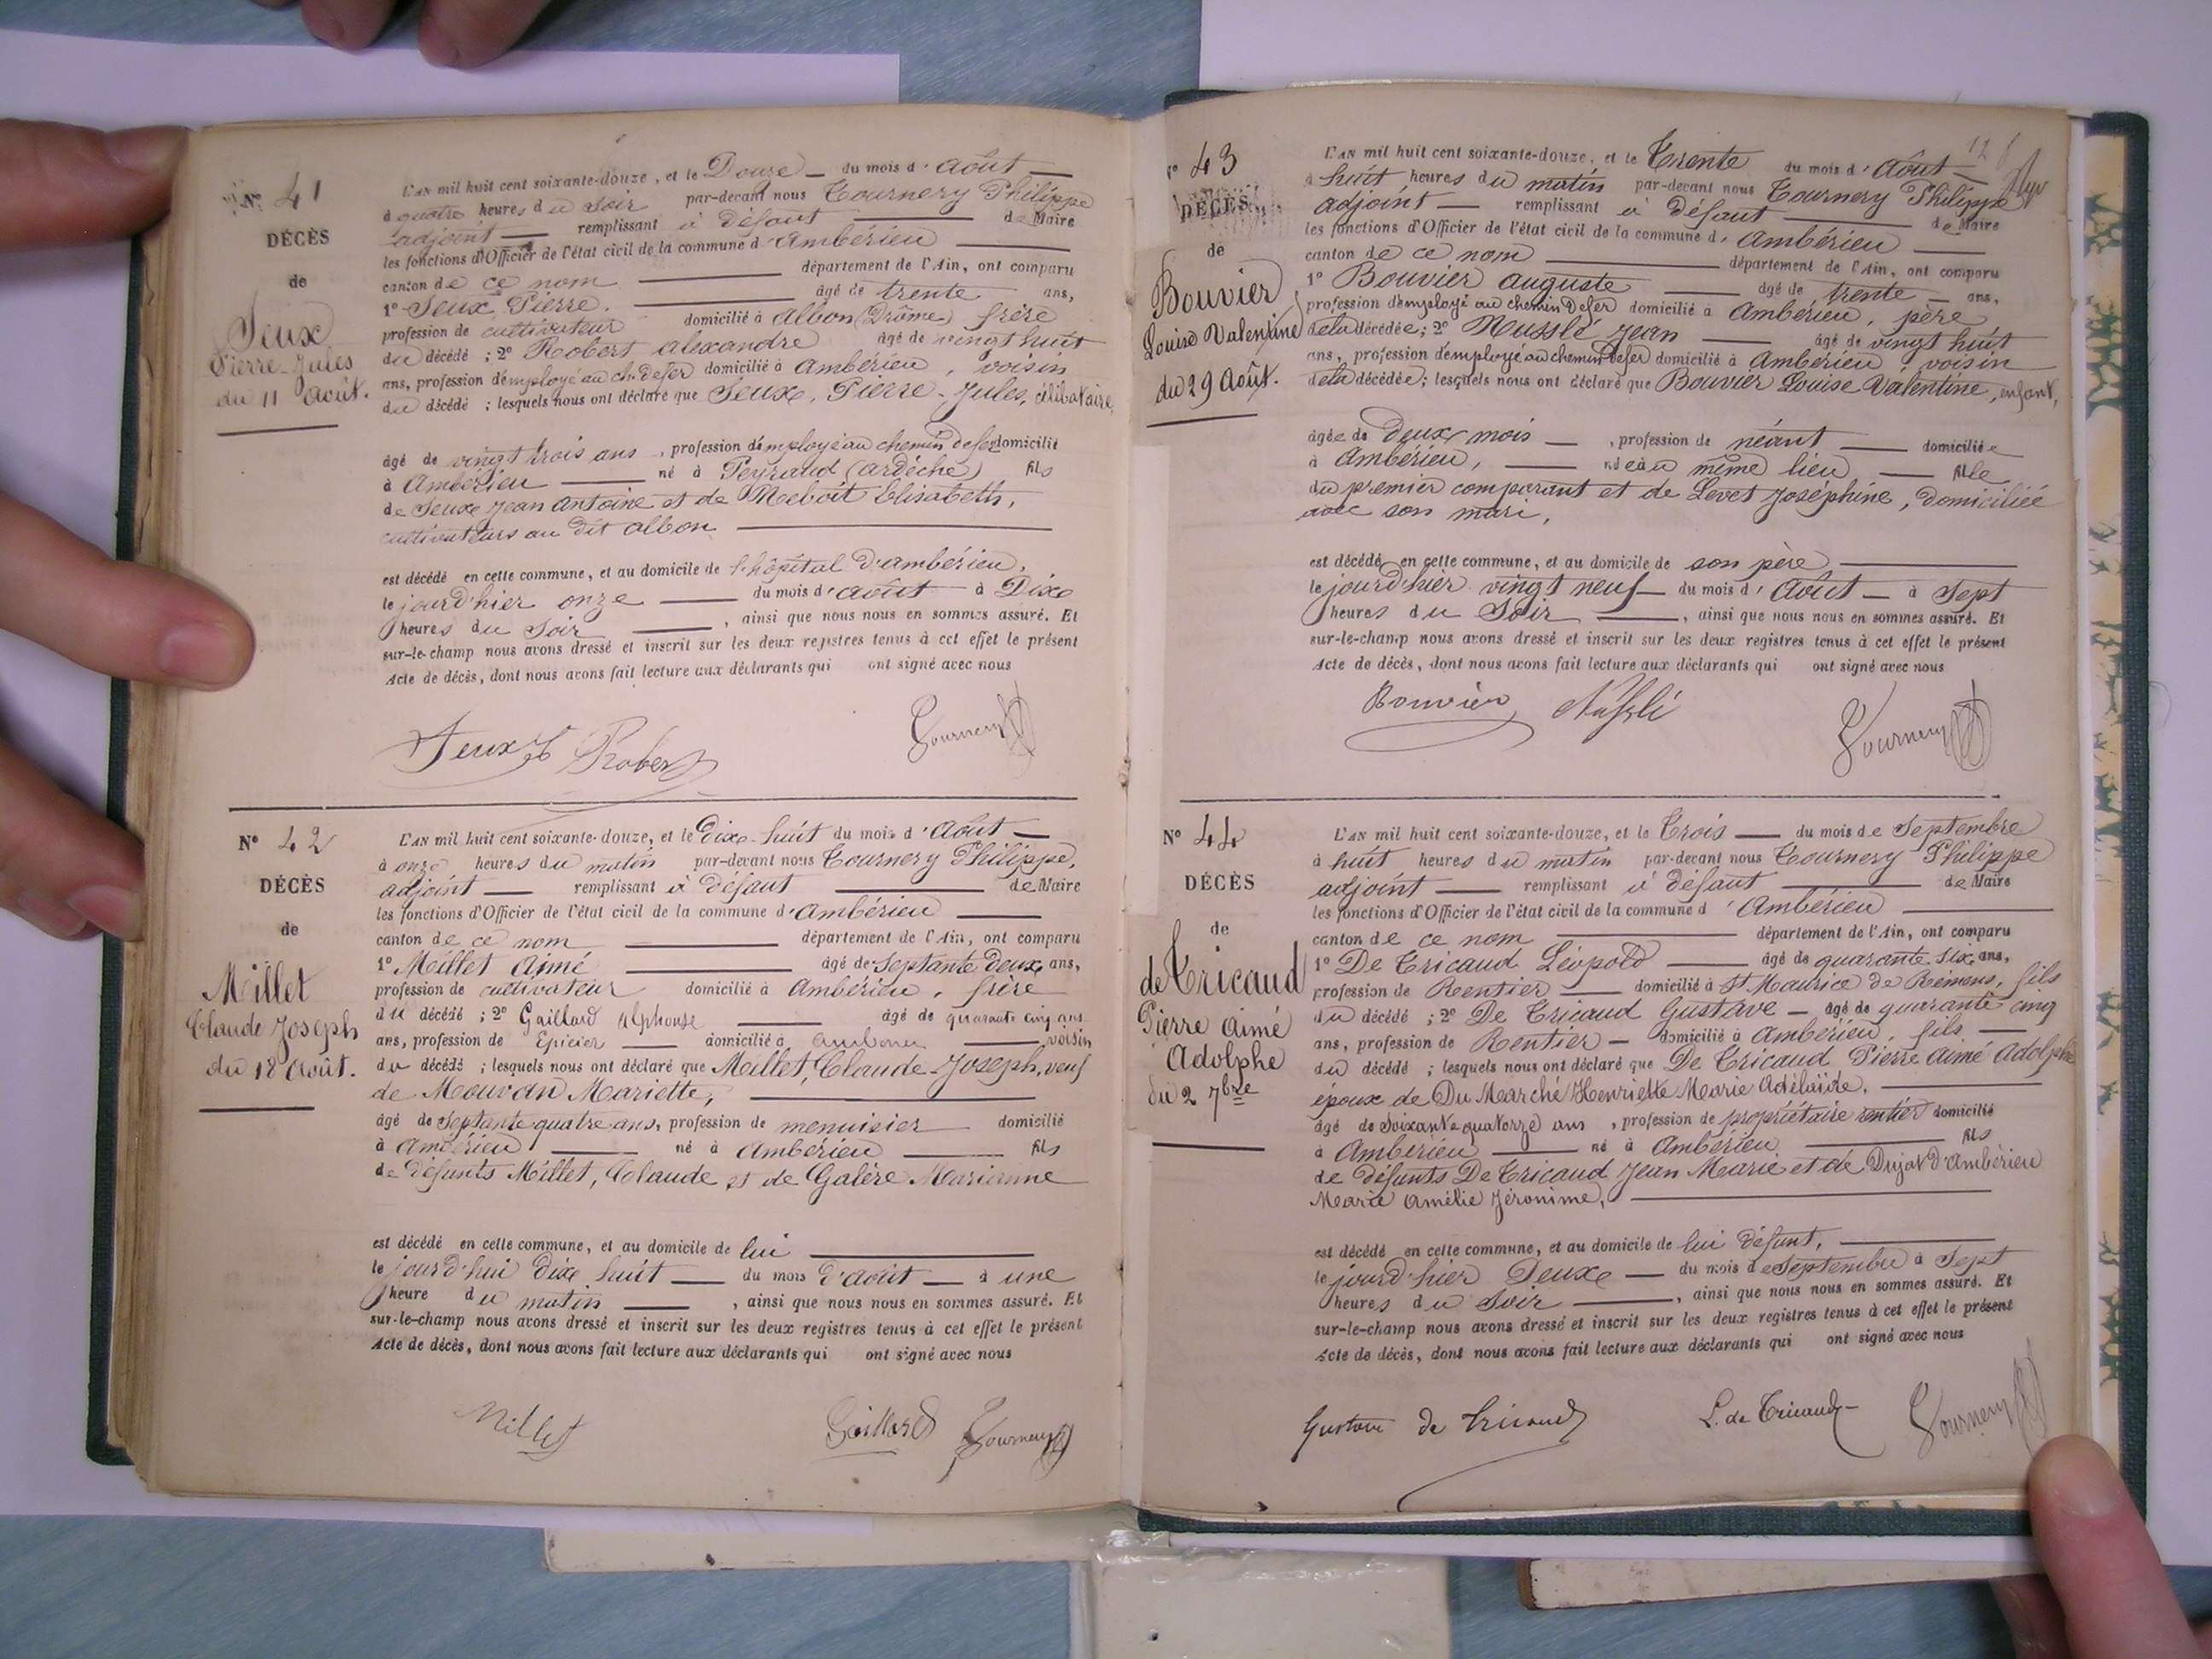 N° 41
DÉCÈS
de
Seux
Pierre-Jules
du 11 août.
L'AN mil huit cent soixante-douze, et le Douze du mois d'août
à quatre heures du soir par-devant nous Tournery Philippe
adjoint remplissant à défaut de Maire
les fonctions d'Officier de l'état civil de la commune d'Ambérieu
canton de ce nom département de l'Ain, ont comparu
1° Seux, Pierre. âgé de trente ans,
profession de cultivateur domicilié à Albon (Drôme) frère
du décédé ; 2° Robert alexandre âgé de vingt huit
ans, profession d'employé au ch. de fer domicilié à Ambérieu, voisin
du décédé ; lesquels nous ont déclaré que Seux, Pierre-Jules, célibataire,
âgé de vingt trois ans, profession d'employé au chemin de fer domicilié
à Ambérieu né à Peyraud (ardèche) fils
de Seux Jean Antoine et de Elisabeth,
cultivateurs au dit albon
est décédé en cette commune, et au domicile de l'hôpital d'ambérieu,
le jour d'hier onze du mois d'août à Dix
heures du Soir, ainsi que nous nous en sommes assuré. Et
sur-le-champ nous avons dressé et inscrit sur les deux registres tenus à cet effet le présent
Acte de décès, dont nous avons fait lecture aux déclarants qui ont signé avec nous
Seux Robert Tournery
N° 42
DÉCÈS
de
Millet
Claude Joseph
du 18 août.
L'AN mil huit cent soixante-douze, et le dix-huit du mois d'Août
à onze heures du matin par-devant nous Tournery Philippe,
adjoint remplissant à défaut de Maire
les fonctions d'Officier de l'état civil de la commune d'Ambérieu
canton de ce nom département de l'Ain, ont comparu
1° Millet Aimé âgé de septante deux ans,
profession de cultivateur domicilié à Ambérieu, frère
du décédé ; 2° Gaillard Alphonse âgé de quarante cinq ans
ans, profession de Epicier domicilié à voisin
du décédé ; lesquels nous ont déclaré que Millet, Claude-Joseph, veuf
de Mouvan Mariette,
âgé de septante quatre ans, profession de menuisier domicilié
à Ambérieu né à Ambérieu fils
de défunts Millet, Claude et de Galère Marianne
est décédé en cette commune, et au domicile de lui
le jour d'hui dix huit du mois d'août à une
heure du matin, ainsi que nous nous en sommes assuré. Et
sur-le-champ nous avons dressé et inscrit sur les deux registres tenus à cet effet le présent
Acte de décès, dont nous avons fait lecture aux déclarants qui ont signé avec nous
Millet Gaillard Tournery
N° 43
DÉCÈS
de
Bouvier
Louise Valentine
du 29 Août.
L'AN mil huit cent soixante-douze, et le Trente du mois d'Août
à huit heures du matin par-devant nous Tournery Philippe
adjoint remplissant à défaut de Maire
les fonctions d'Officier de l'état civil de la commune d'Ambérieu
canton de ce nom département de l'Ain, ont comparu
1° Bouvier auguste âgé de trente ans,
profession d'employé au chemin de fer domicilié à Ambérieu, père
de la décédée ; 2° Nusslé Jean âgé de vingt huit
ans, profession d'employé au chemin de fer domicilié à Ambérieu, voisin
de la décédée ; lesquels nous ont déclaré que Bouvier Louise Valentine, enfant,
âgée de Deux mois, profession de néant domiciliée
à Ambérieu, née au même lieu fille
du premier comparant et de Levet Joséphine, domiciliée
avec son mari,
est décédé en cette commune, et au domicile de son père
le jour d'hier vingt neuf du mois d'Août à Sept
heures du Soir, ainsi que nous nous en sommes assuré. Et
sur-le-champ nous avons dressé et inscrit sur les deux registres tenus à cet effet le présent
Acte de décès, dont nous avons fait lecture aux déclarants qui ont signé avec nous
Bouvier Nusslé Tournery
N° 44
DÉCÈS
de
de Tricaud
Pierre Aimé
Adolphe
du 2 7bre
L'AN mil huit cent soixante-douze, et le Trois du mois de Septembre
à huit heures du matin par-devant nous Tournery Philippe
adjoint remplissant à défaut de Maire
les fonctions d'Officier de l'état civil de la commune d'Ambérieu
canton de ce nom département de l'Ain, ont comparu
1° De Tricaud Léopold âgé de quarante six ans,
profession de Rentier domicilié à St Maurice de Rémens, fils
du décédé ; 2° De Tricaud Gustave âgé de quarante cinq
ans, profession de Rentier domicilié à Ambérieu, fils
du décédé ; lesquels nous ont déclaré que De Tricaud Pierre Aimé Adolphe
époux de Du Marché Henriette Marie Adélaïde,
âgé de Soixante quatorze ans, profession de propriétaire rentier domicilié
à Ambérieu né à Ambérieu fils
de défunts De Tricaud Jean Marie et de Dujat d'Ambérieu
Marie Amélie Jéronime,
est décédé en cette commune, et au domicile de lui défunt,
le jour d'hier Deux du mois de Septembre à Sept
heures du Soir, ainsi que nous nous en sommes assuré. Et
sur-le-champ nous avons dressé et inscrit sur les deux registres tenus à cet effet le présent
Acte de décès, dont nous avons fait lecture aux déclarants qui ont signé avec nous
Gustave de Tricaud L. de Tricaud Tournery